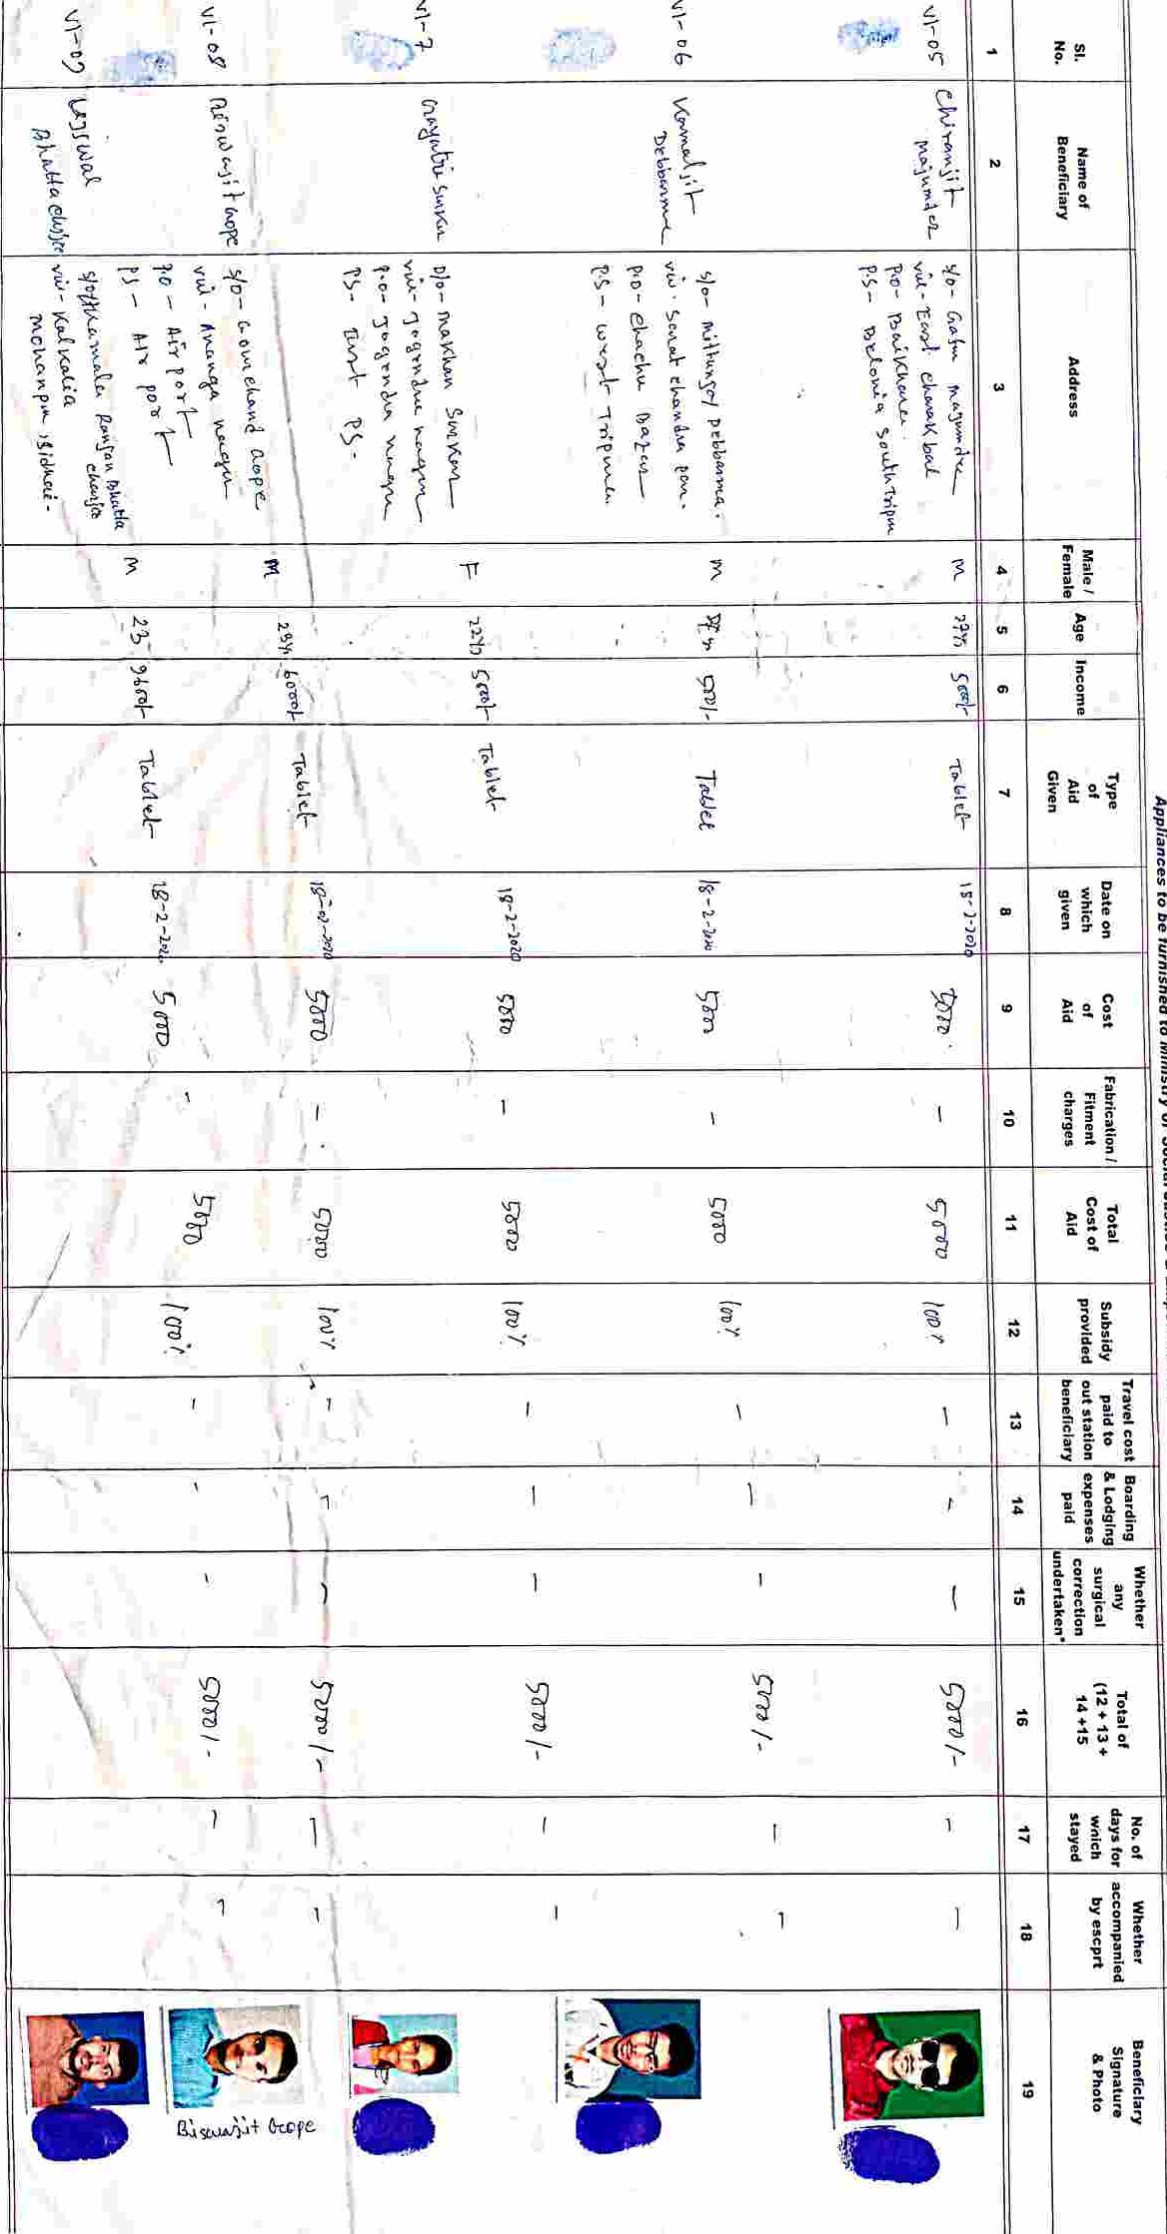 Appliances to be furnished to Ministry of Social
Sl. No.
Name of Beneficiary
Address
Male / Female
Age
Income
Type of Aid Given
Date on which given
Cost of Aid
Fabrication / Fitment charges
Total Cost of Aid
Subsidy provided
Travel cost paid to out station beneficiary
Boarding & Lodging expenses paid
Whether any surgical correction undertaken*
Total of (12 + 13 + 14 +15
No. of days for which stayed
Whether accompanied by escprt
Beneficiary Signature & Photo
1 2 3 4 5 6 7 8 9 10 11 12 13 14 15 16 17 18 19
VI-05
Chiranjit
Majumder
S/o- Majumder
vill- East Charakbai
P.O- Baikhora
P.S- Belonia South Tripura
M 27yrs 5000/- Tablet 18-2-2020 5000 - 5000 100% - - - 5000/- - -
VI-06
Kamaljit
Debbarma
S/o- Debbarma
vill. Sarat Chandra
P.O- Bazar
P.S- West Tripura
M 500/- Tablet 18-2-2020 5000 - 5000 100% - - - 5000/- - -
VI-7
Gayatri Sarkar
D/o- Makhan Sarkar
vill- Jogendra nagar
P.O- Jogendra nagar
PS- East PS-
F 22yrs 5000/- Tablet 18-2-2020 5000 - 5000 100% - - - 5000/- - -
VI-08
Biswajit Gope
S/o- Gope
vill- Ananga nagar
P.O - Air port
PS - Air port
M 23yr 6000/- Tablet 18-02-2020 5000 - 5000 100% - - - 5000/- - -
Biswajit Gope
VI-09
Bhattacharjee
Ranjan Bhatta
charjee
vill- Kalkalia
Mohanpur, Sidhai-
M 23 9600/- Tablet 18-2-2020 5000 - 5000 100% - - - 5000/- - -